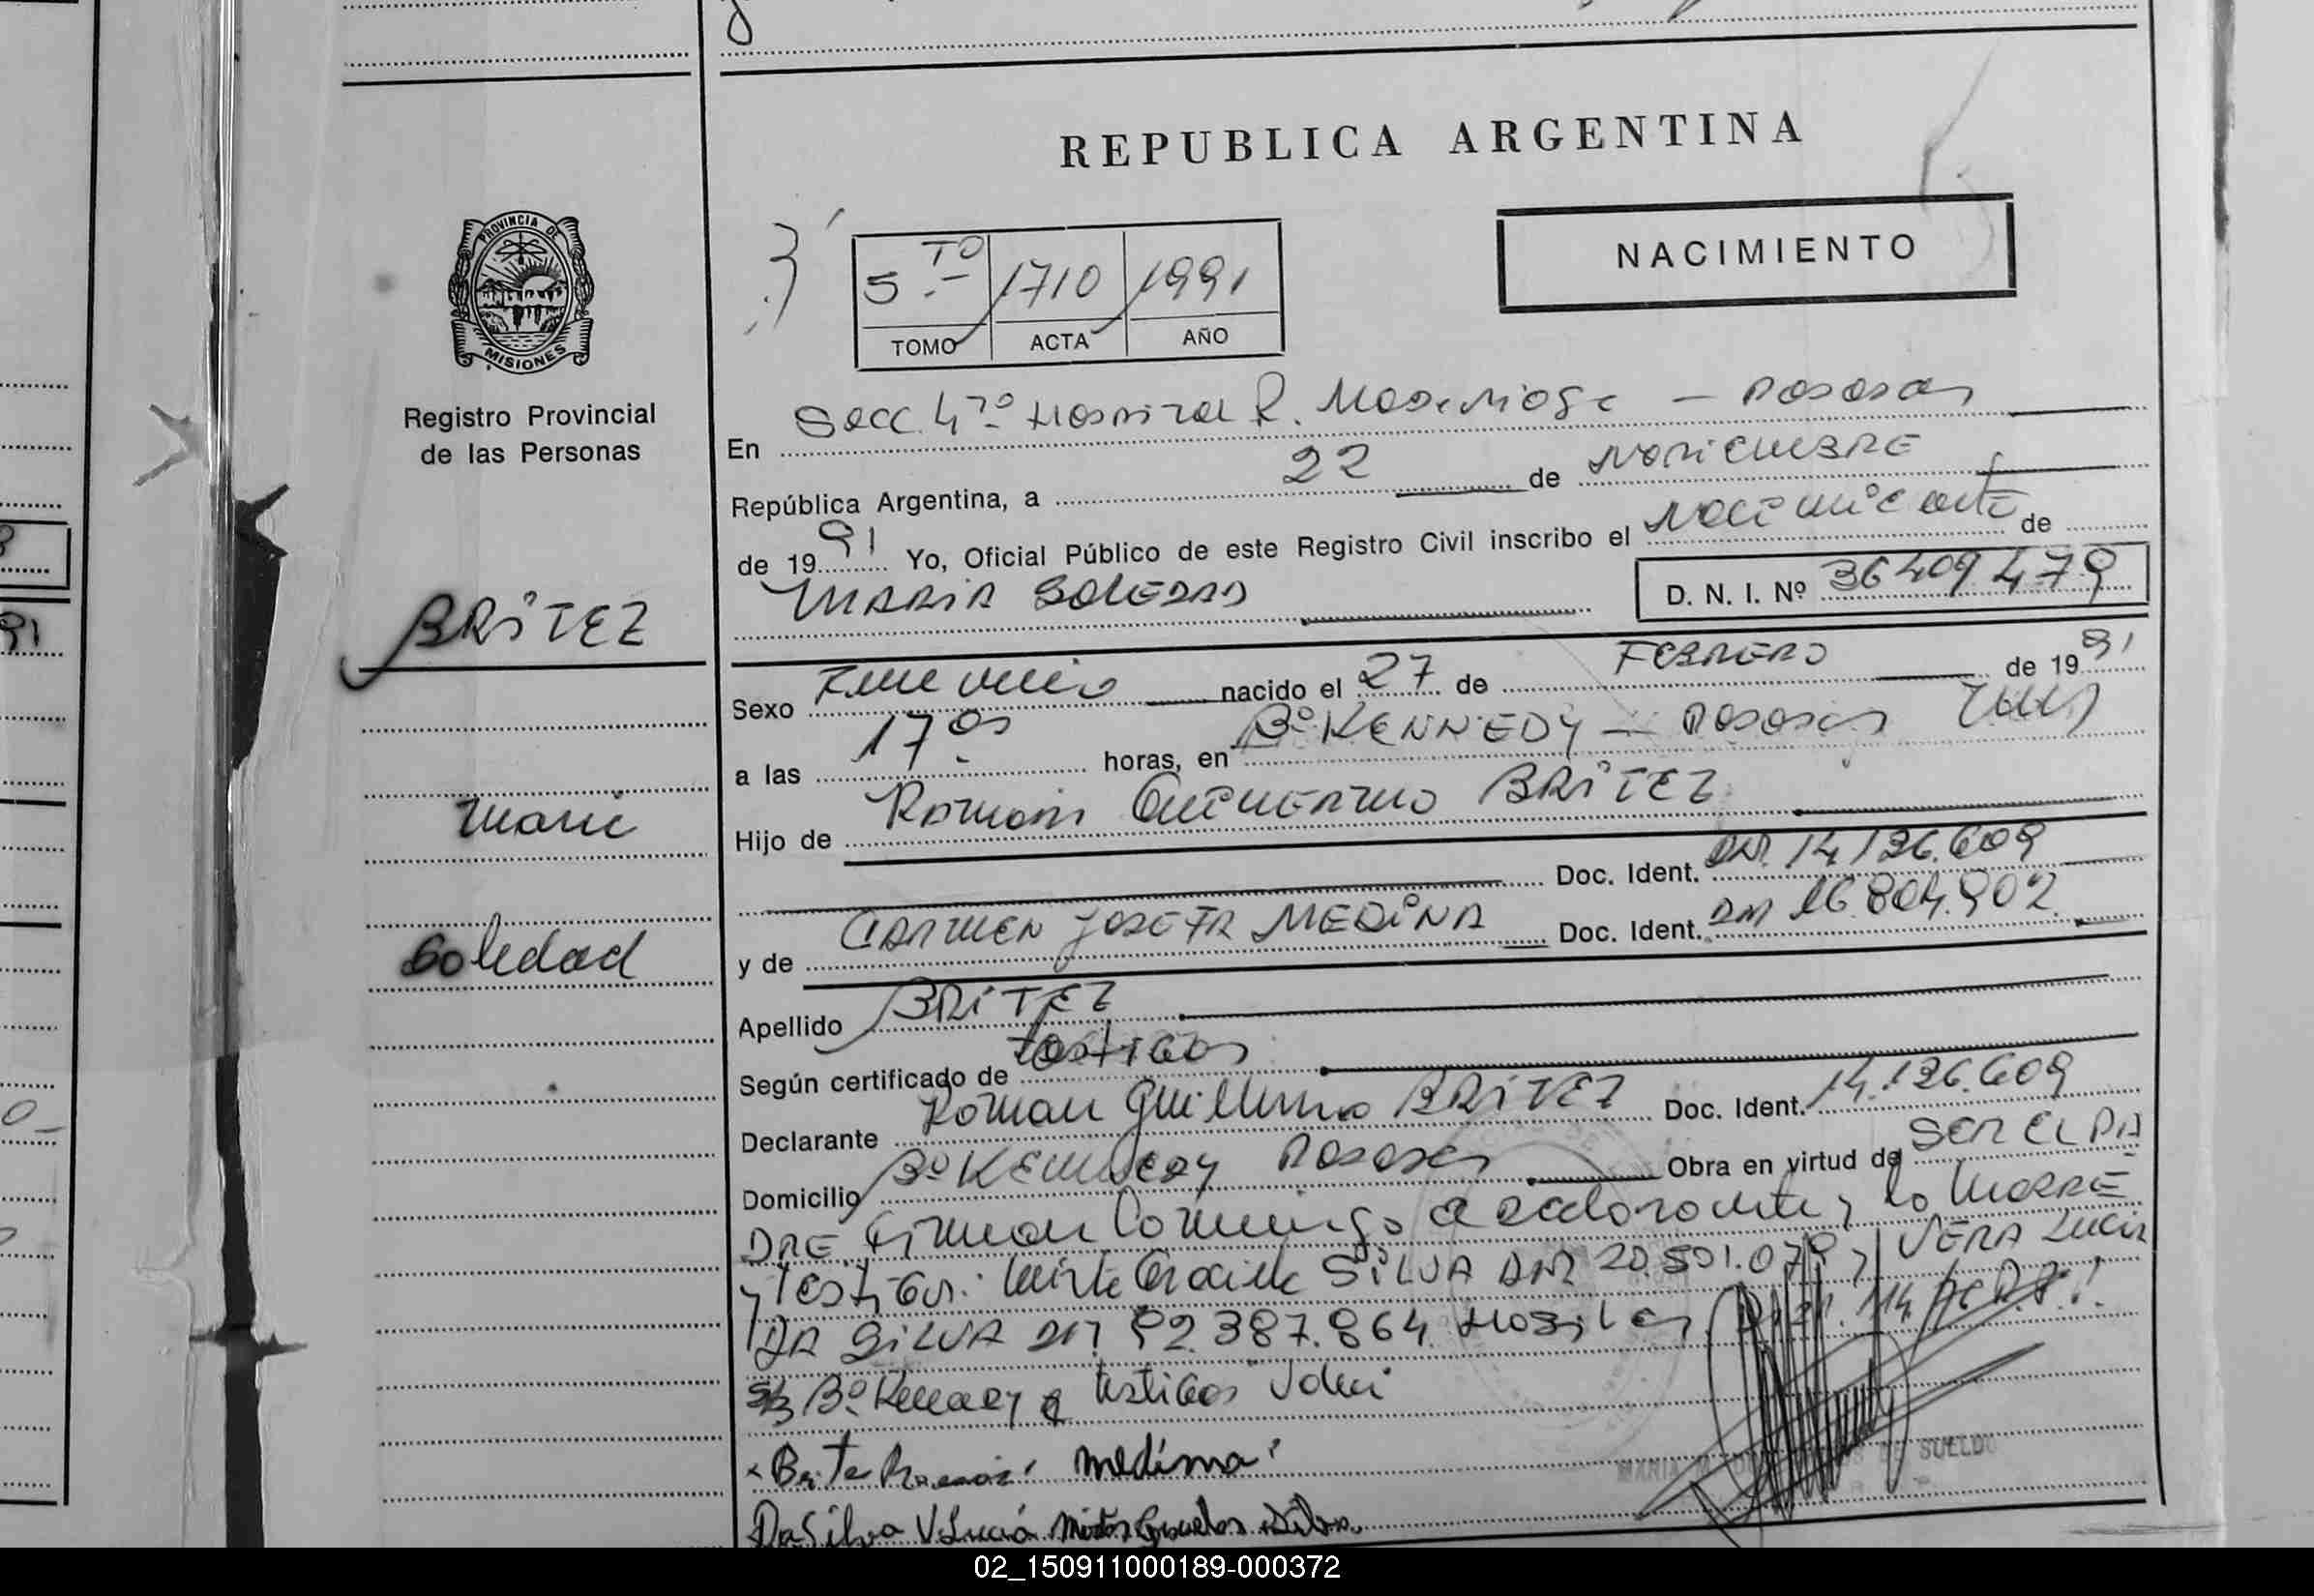 REPUBLICA ARGENTINA
NACIMIENTO
5.TO 1710 1991
TOMO ACTA AÑO
PROVINCIA DE
MISIONES
Registro Provincial
de las Personas
BRITEZ
Maria
Soledad
En Secc. 4ta Hospital R. Madariaga - Posadas
República Argentina, a 22 de NOVIEMBRE
de 1991 Yo, Oficial Público de este Registro Civil inscribo el Nacimiento de
MARIA SOLEDAD D. N. I. Nº 36409479
Sexo Femenino nacido el 27 de FEBRERO de 1991
a las 17 horas, en Bº KENNEDY - Posadas
Hijo de Roman Guillermo BRITEZ
Doc. Ident. DNI. 14.126.609
y de CARMEN JOSEFA MEDINA Doc. Ident. DNI 16.804.902
Apellido BRITEZ
Según certificado de testigos
Declarante Roman Guillermo BRITEZ Doc. Ident. 14.126.609
Domicilio Bº Kennedy Posadas Obra en virtud de SER EL PA
DRE Firman Conmigo declarante y la MADRE
y Testigos: Mirta Graciela SILVA DNI 20.501.079 y VERA Lucia
DA SILVA DNI 92.387.864
Bº Kennedy testigos
Medina
Da Silva V Lucia
SUELDO
02_150911000189-000372